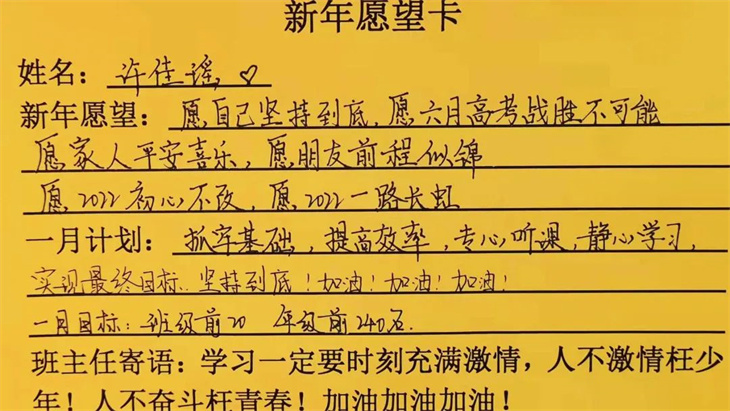 新年愿望卡
姓名：许佳谣♡
新年愿望：愿自己坚持到底，愿六月高考战胜不可能
愿家人平安喜乐，愿朋友前程似锦
愿2022初心不改，愿2022一路长虹
一月计划：抓牢基础，提高效率，专心听课，静心学习，
实现最终目标．坚持到底！加油！加油！加油！
一月目标：班级前20 年级前240名．
班主任寄语：学习一定要时刻充满激情，人不激情枉少
年！人不奋斗枉青春！加油加油加油！